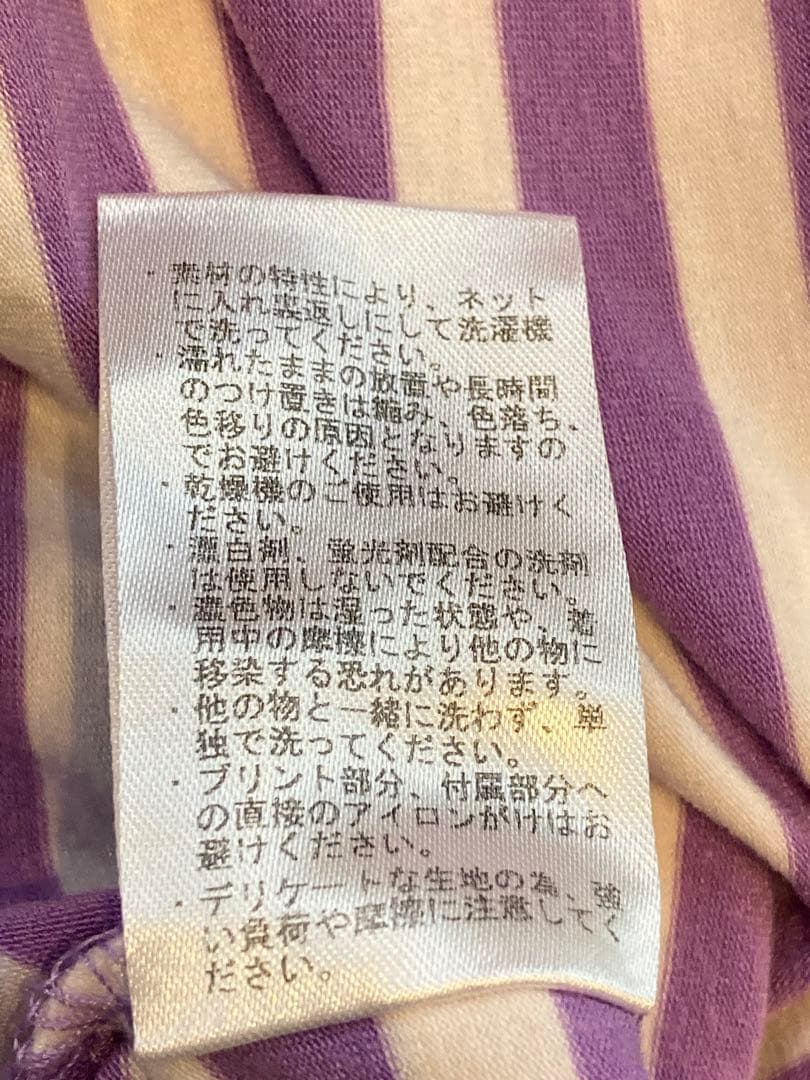 ・素材の特性により、ネット
に入れ裏返しにして洗濯機
で洗ってください。
・濡れたままの放置や長時間
のつけ置きは縮み、色落ち、
色移りの原因となりますの
でお避けください。
・乾燥機のご使用はお避けく
ださい。
・漂白剤、蛍光剤配合の洗剤
は使用しないでください。
・濃色物は湿った状態や、着
用中の摩擦により他の物に
移染する恐れがあります。
・他の物と一緒に洗わず、単
独で洗ってください。
・プリント部分、付属部分へ
の直接のアイロンがけはお
避けください。
・デリケートな生地の為、強
い負荷や摩擦に注意してく
ださい。